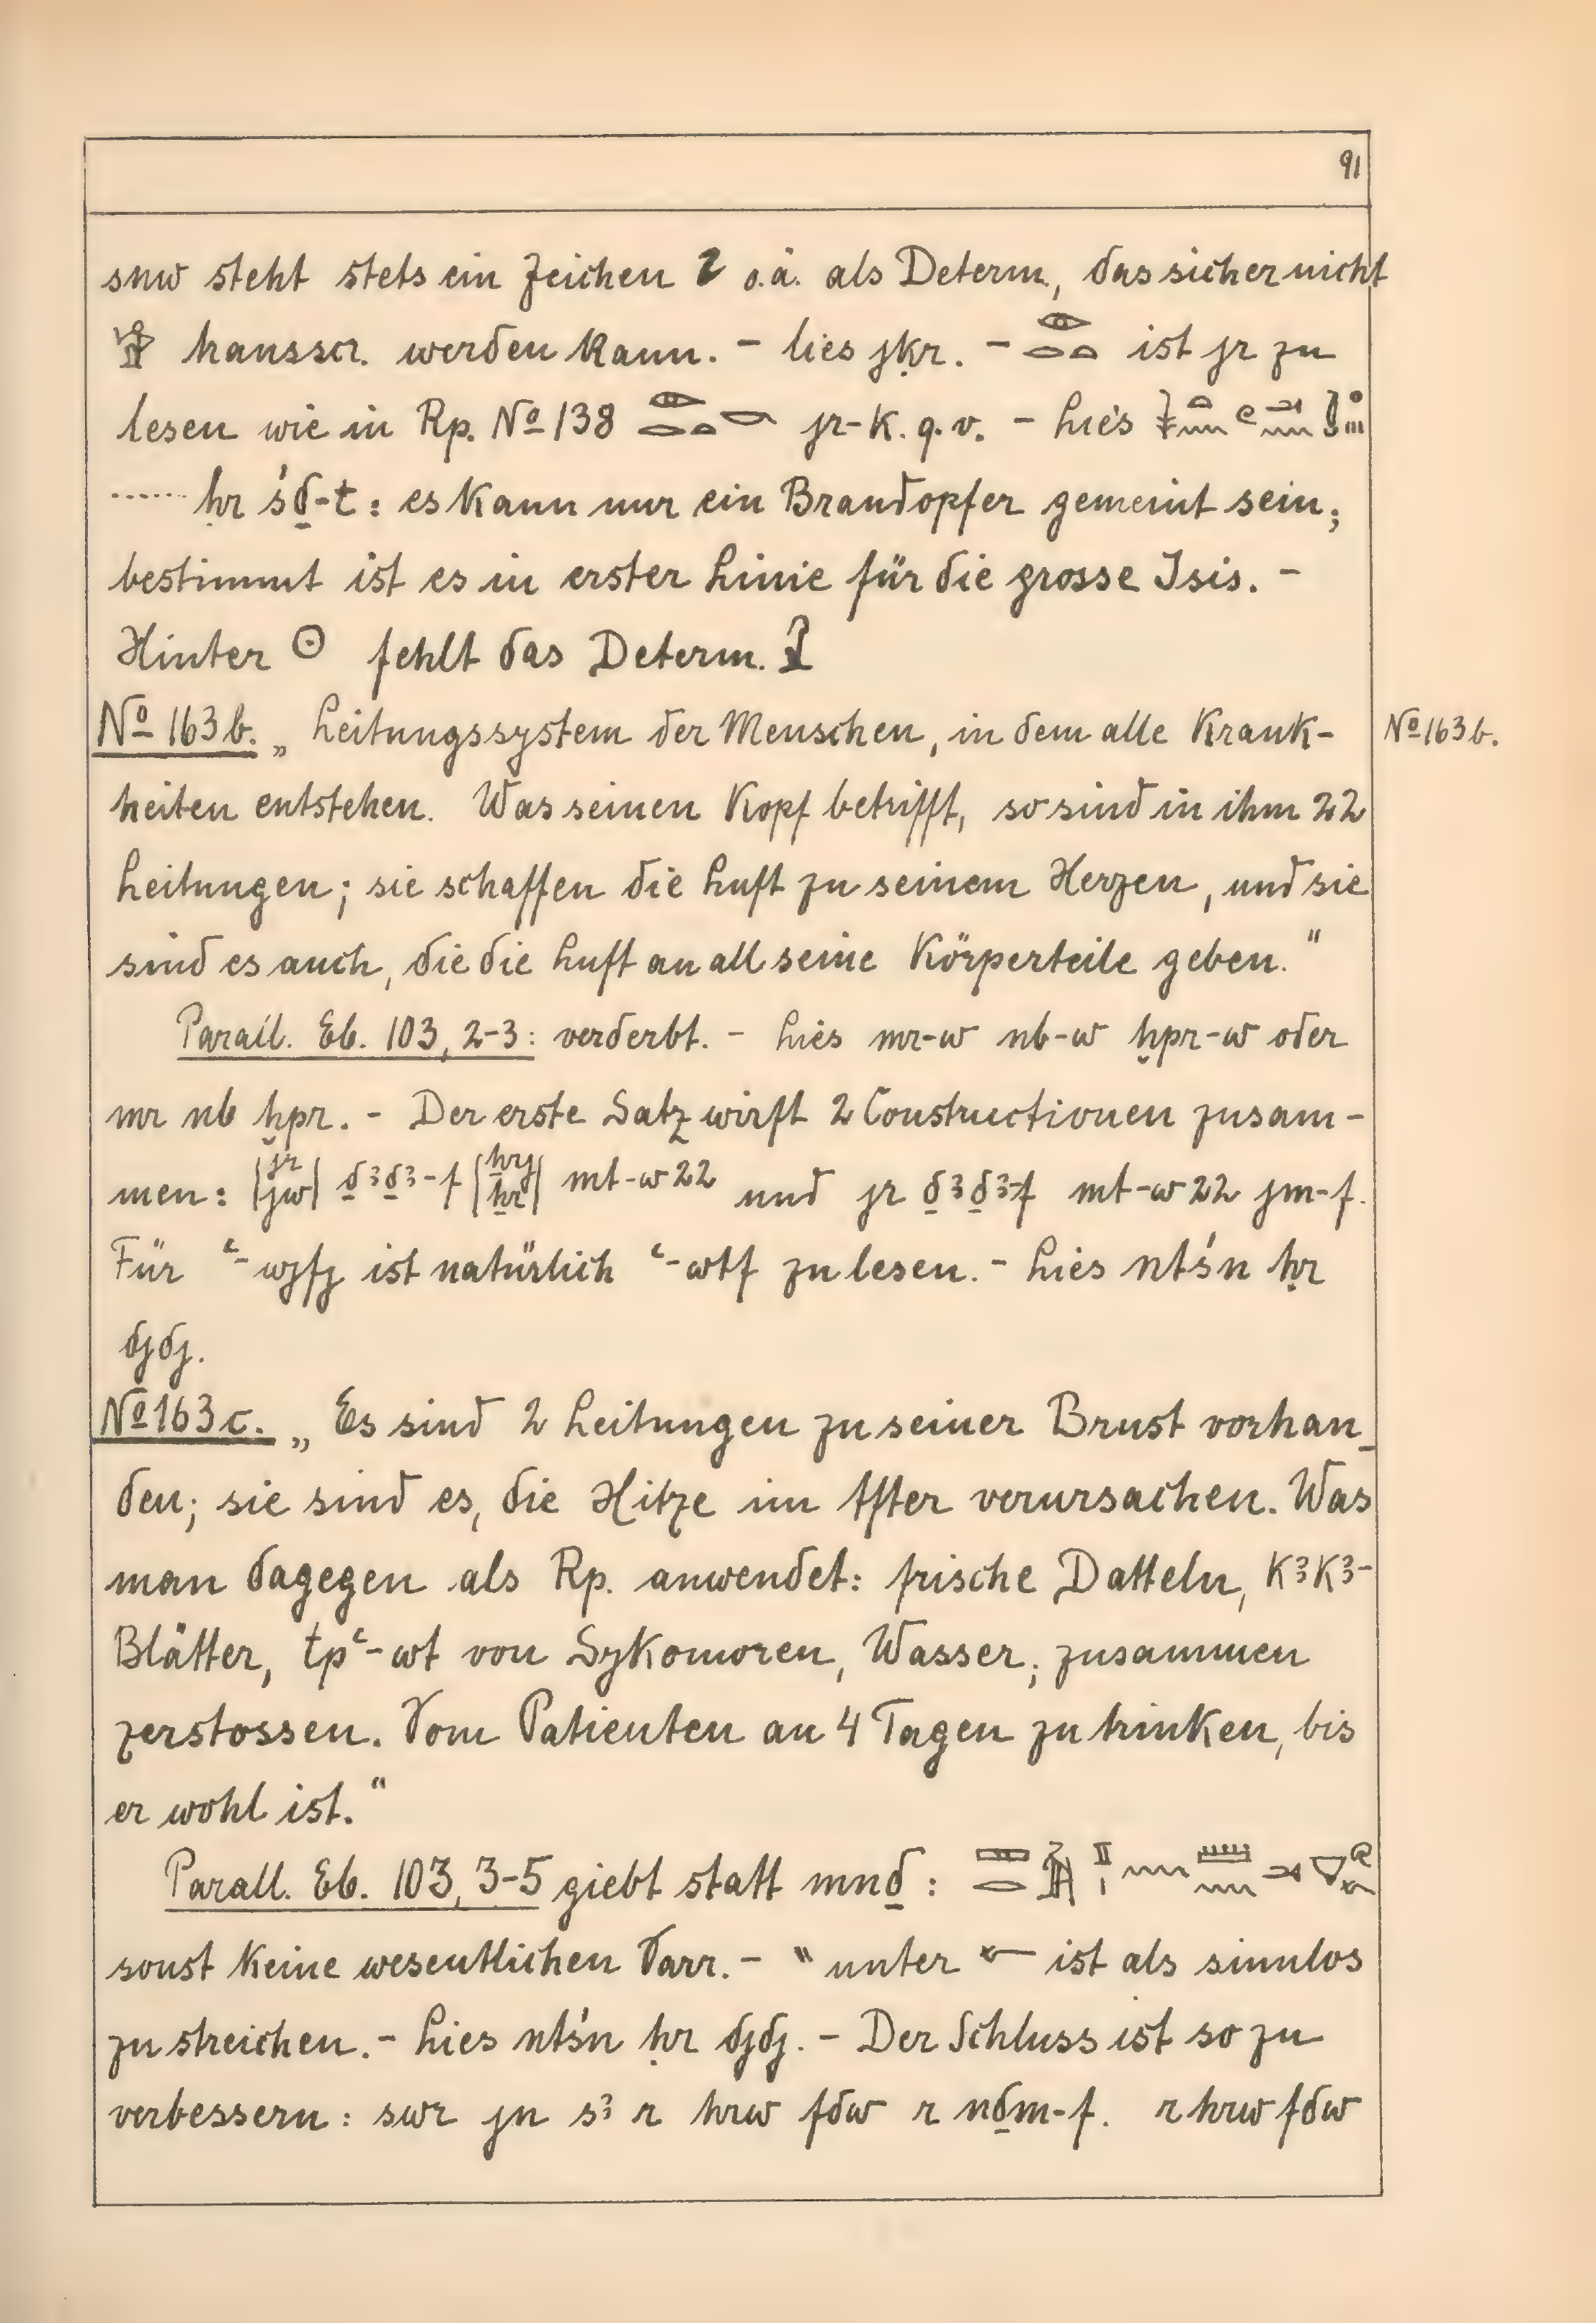 91
snw steht stets ein Zeichen o.ä. als Determ., das sicher nicht
transscr. werden kann. - lies jḳr. - 𓁹𓂋𓏏 ist jr zu
lesen wie in Rp. No 138 𓁹𓂋𓏏𓎡 jr-k. q. v. - Lies
...... ḥr śḏ-t : es kann nur ein Brandopfer gemeint sein;
bestimmt ist es in erster Linie für die grosse Isis. -
Hinter ☉ fehlt das Determ.
No 163 b. „ Leitungssystem der Menschen, in dem alle Krank-
No 163 b.
heiten entstehen. Was seinen Kopf betrifft, so sind in ihm 22
Leitungen; sie schaffen die Luft zu seinem Herzen, und sie
sind es auch, die die Luft an all seine Körperteile geben."
Parall. Eb. 103, 2-3: verderbt. - Lies mr-w nb-w ḫpr-w oder
mr nb ḫpr. - Der erste Satz wirft 2 Constructionen zusam-
men: |jr jw| ḏꜣḏꜣ-f |ẖry ẖr| mt-w 22 und jr ḏꜣḏꜣ-f mt-w 22 jm-f.
Für ꜥ-wjfj ist natürlich ꜥ-wtf zu lesen. - Lies ntśn ḥr
djdj.
No 163 c. „ Es sind 2 Leitungen zu seiner Brust vorhan-
den; sie sind es, die Hitze im After verursachen. Was
man dagegen als Rp. anwendet: frische Datteln, kꜣkꜣ-
Blätter, tpꜥ-wt von Sykomoren, Wasser; zusammen
zerstossen. Vom Patienten an 4 Tagen zu trinken, bis
er wohl ist."
Parall. Eb. 103, 3-5 giebt statt mnḏ :
sonst keine wesentlichen Varr. - " unter ist als sinnlos
zu streichen. - Lies ntśn ḥr djdj. - Der Schluss ist so zu
verbessern : swr jn sꜣ r hrw fdw r nḏm-f. r hrw fdw